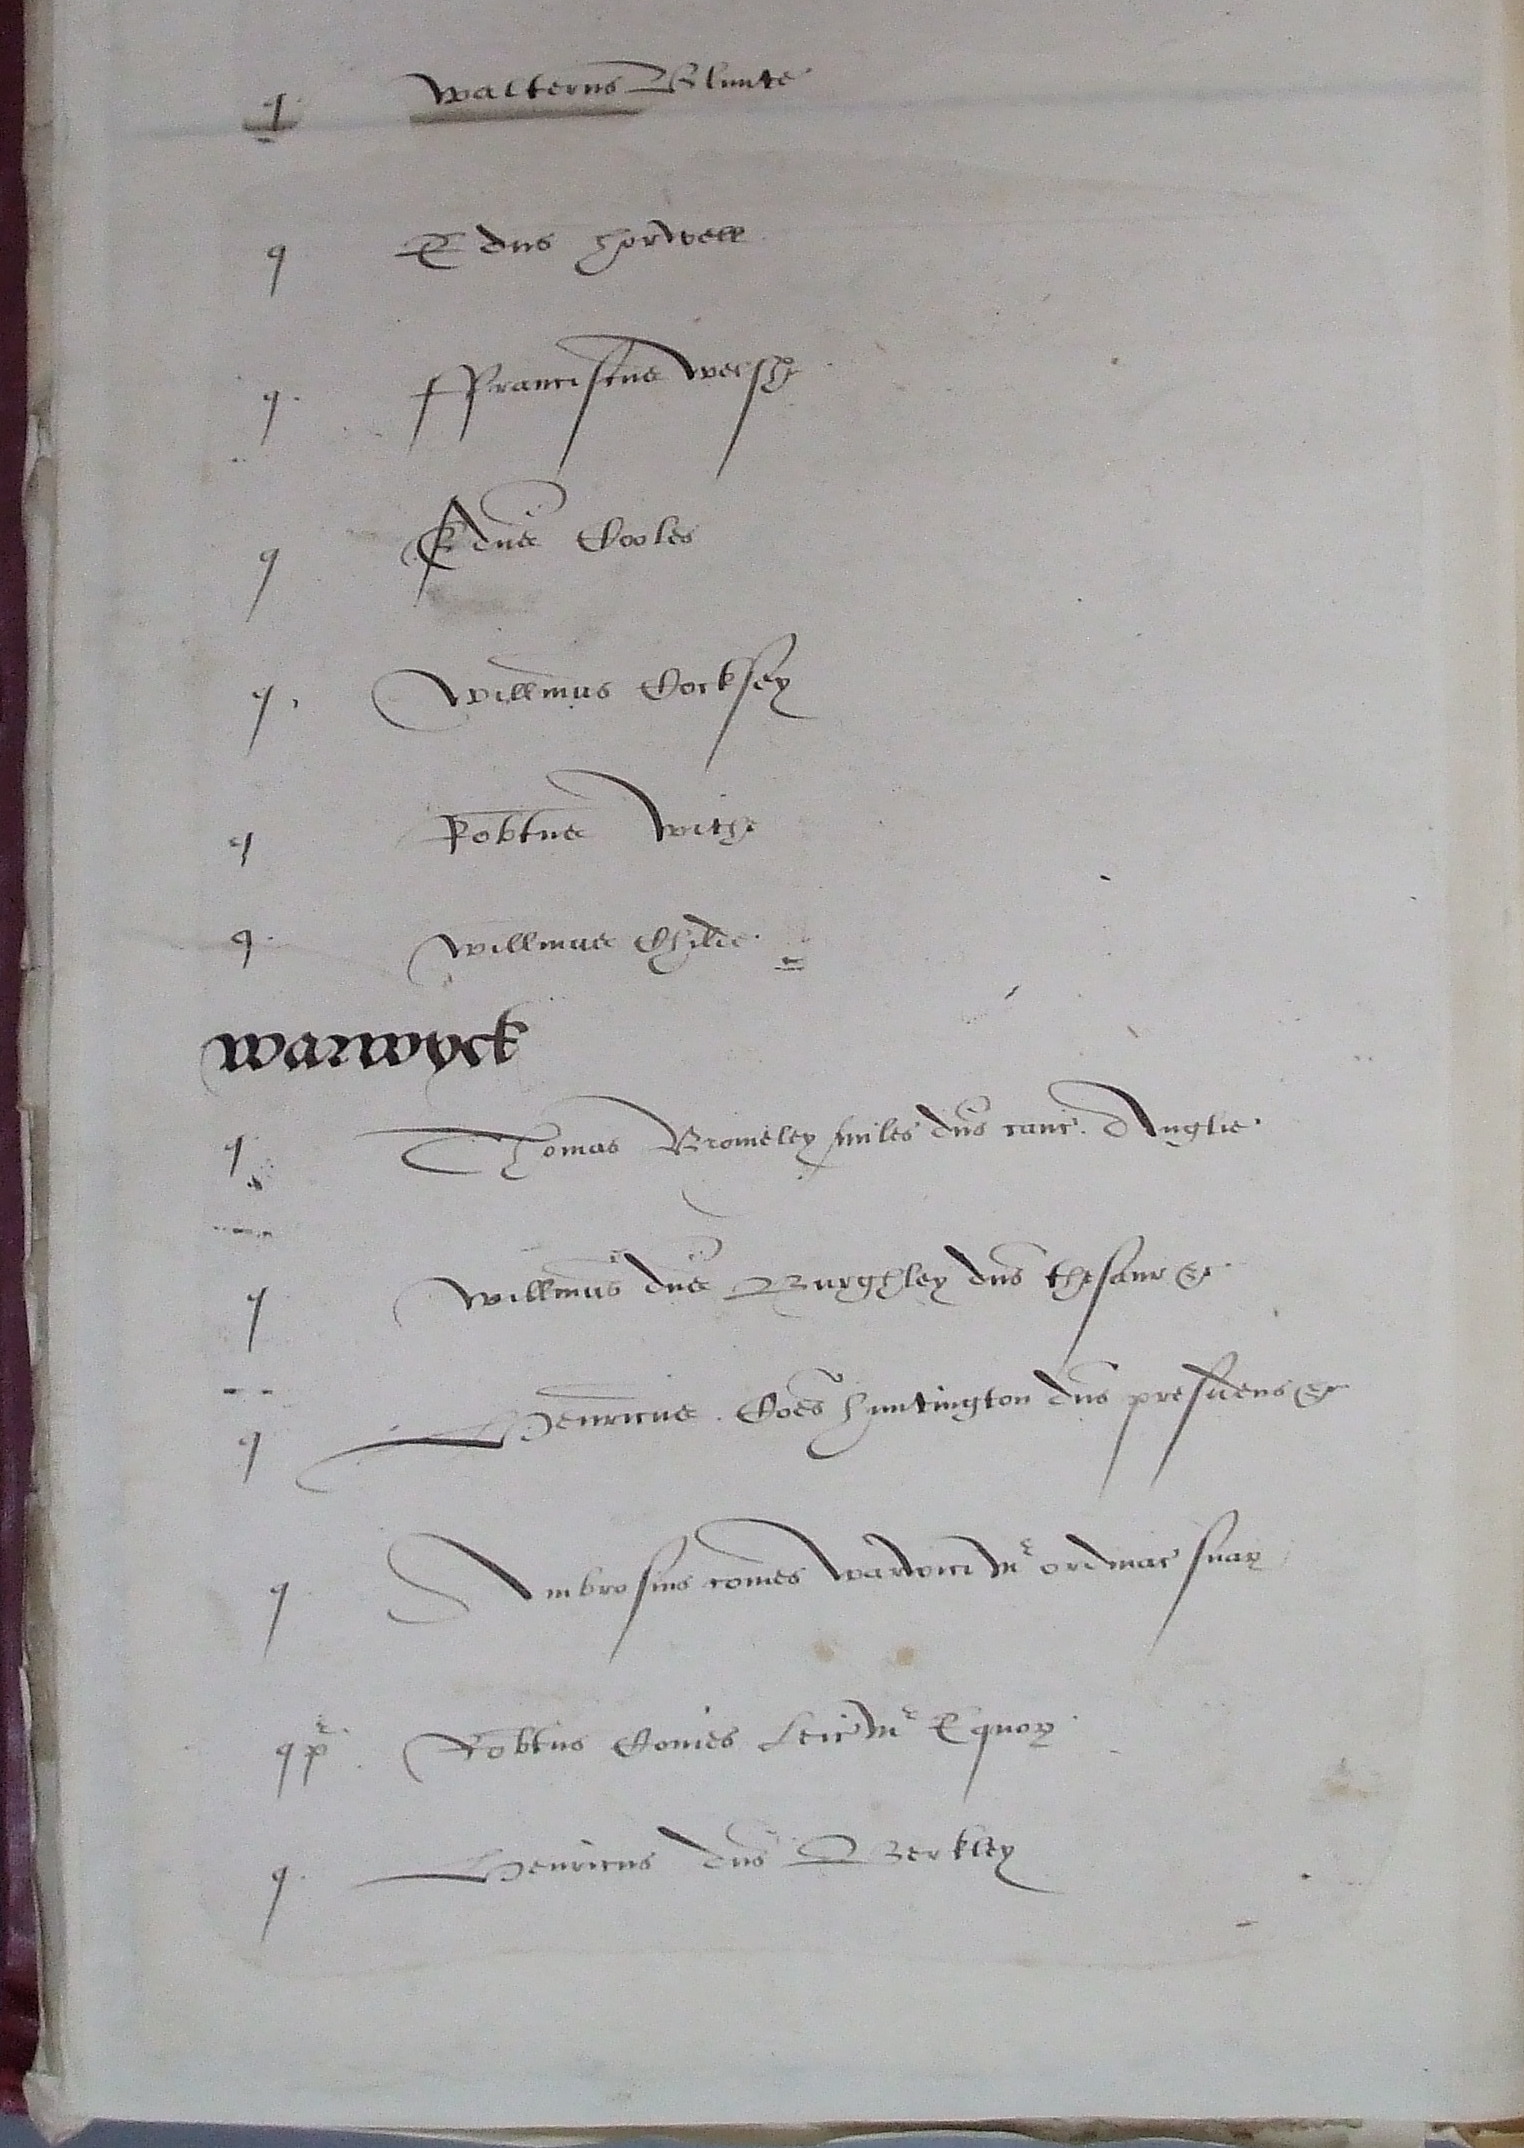 q Walterus Blunte
q Edus Horwell
q. Ffranciscus Welshe
q Edus Cooles
q. Willmus Cocksey
q Robtus Withe
q. Willmus Childe
Warwyck
q. Thomas Bromeley miles dns canc. Anglie
q Willmus dns Burghley dns thesaur &c
q Henricus. Coes Huntington dns presidens &c
q Ambrosius comes Warwici mr ordinac suar
q pr. Robtus Comes Leic mr Equor
q. Henricus dns Berkley